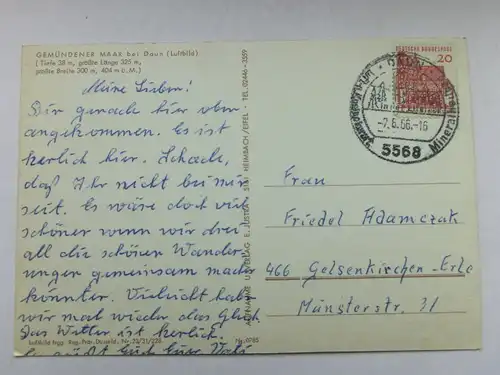 GEMÜNDENER MAAR bei Daun (Luftbild)
[ Tiefe 38 m, größte Länge 325 m,
größte Breite 300 m, 404 m ü. M.]
Meine Lieben!
Bin gerade hier oben
angekommen. Es ist
herlich hier. Schade,
daß Ihr nicht bei mir
seit. Es wäre doch viel
schöner wenn wir drei
all die schönen Wander-
ungen gemeinsam machen
könnten. Vielleicht haben
wir mal wieder das Glück.
Das Wetter ist herlich.
Es grüßt Euch Euer
Luftbild frgg. Reg.-Präs. Düsseld. Nr. 20/31/226
Hg. 0765
AUFNAHME U. VERLAG E. JUSTRA 5161 HEIMBACH/EIFEL - TEL. 02446-3559
DEUTSCHE BUNDESPOST
20
DAUN
-7.6.66.-16
5568
Mineral
Frau
Friedel Adamczak
466 Gelsenkirchen-Erle
Münsterstr. 31